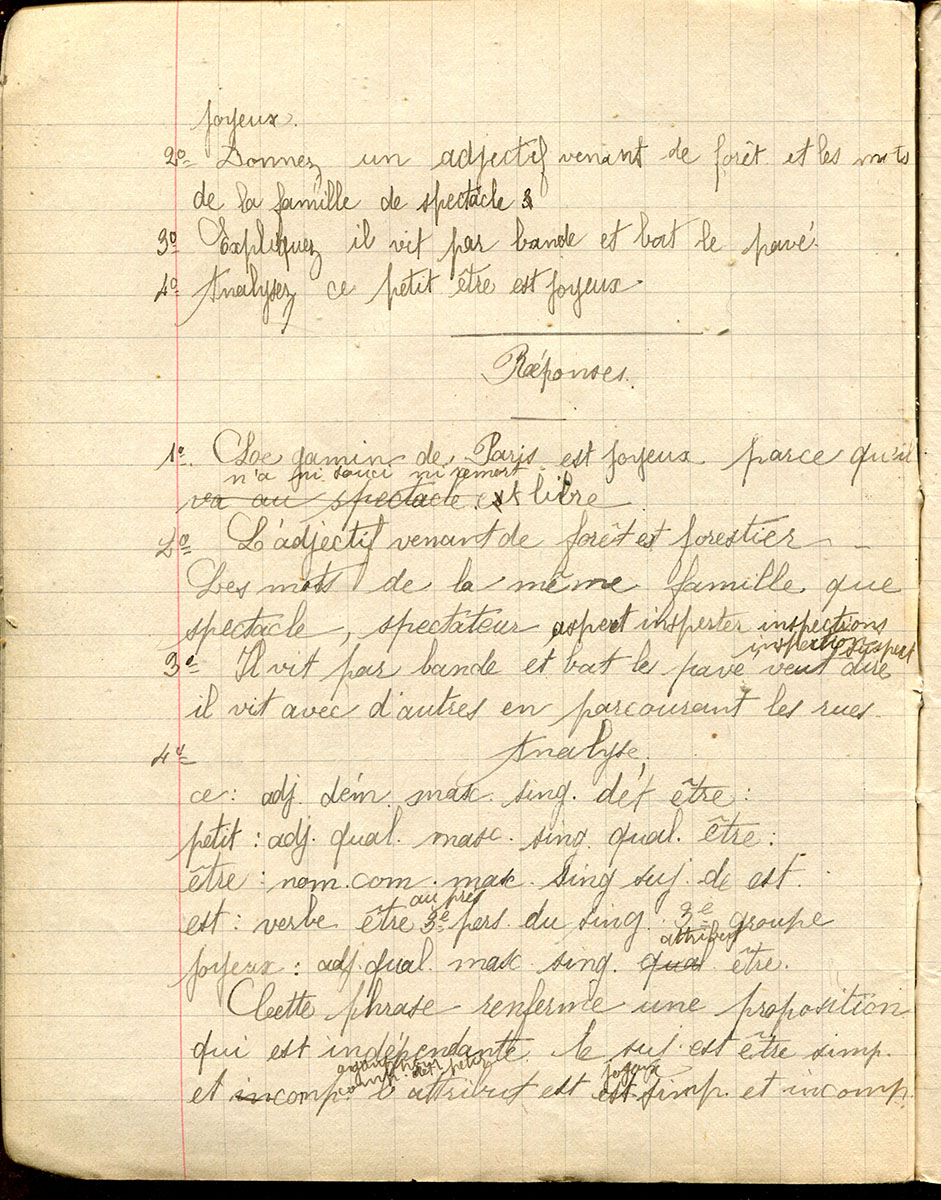 joyeux.
2º Donnez un adjectif venant de forêt et les mots
de la famille de spectacle
3º Expliquez il vit par bande et bat le pavé.
4º Analysez ce petit être est joyeux.
Réponses.
1º. Le gamin de Paris est joyeux parce qu'il
n'a ni souci ni remort
va au spectacle. est libre
2º L'adjectif venant de forêt est forestier
Les mots de la même famille que
spectacle, spectateur aspect inspecter inspections
inspection suspect
3º Il vit par bande et bat le pavé veut dire
il vit avec d'autres en parcourant les rues.
4º Analyse.
ce : adj. dém. masc. sing. dét être :
petit : adj. qual. masc. sing. qual. être :
être : nom. com. masc. sing suj. de est.
au prés
est : verbe être 3e pers. du sing. 3e groupe
attribut
joyeux : adj. qual. masc. sing. qual être.
Cette phrase renferme une proposition
qui est indépendante. le suj. est être simp.
ayant pour joyeux
comp. dét. petit
et incomp. l'attribut est est simp. et incomp.